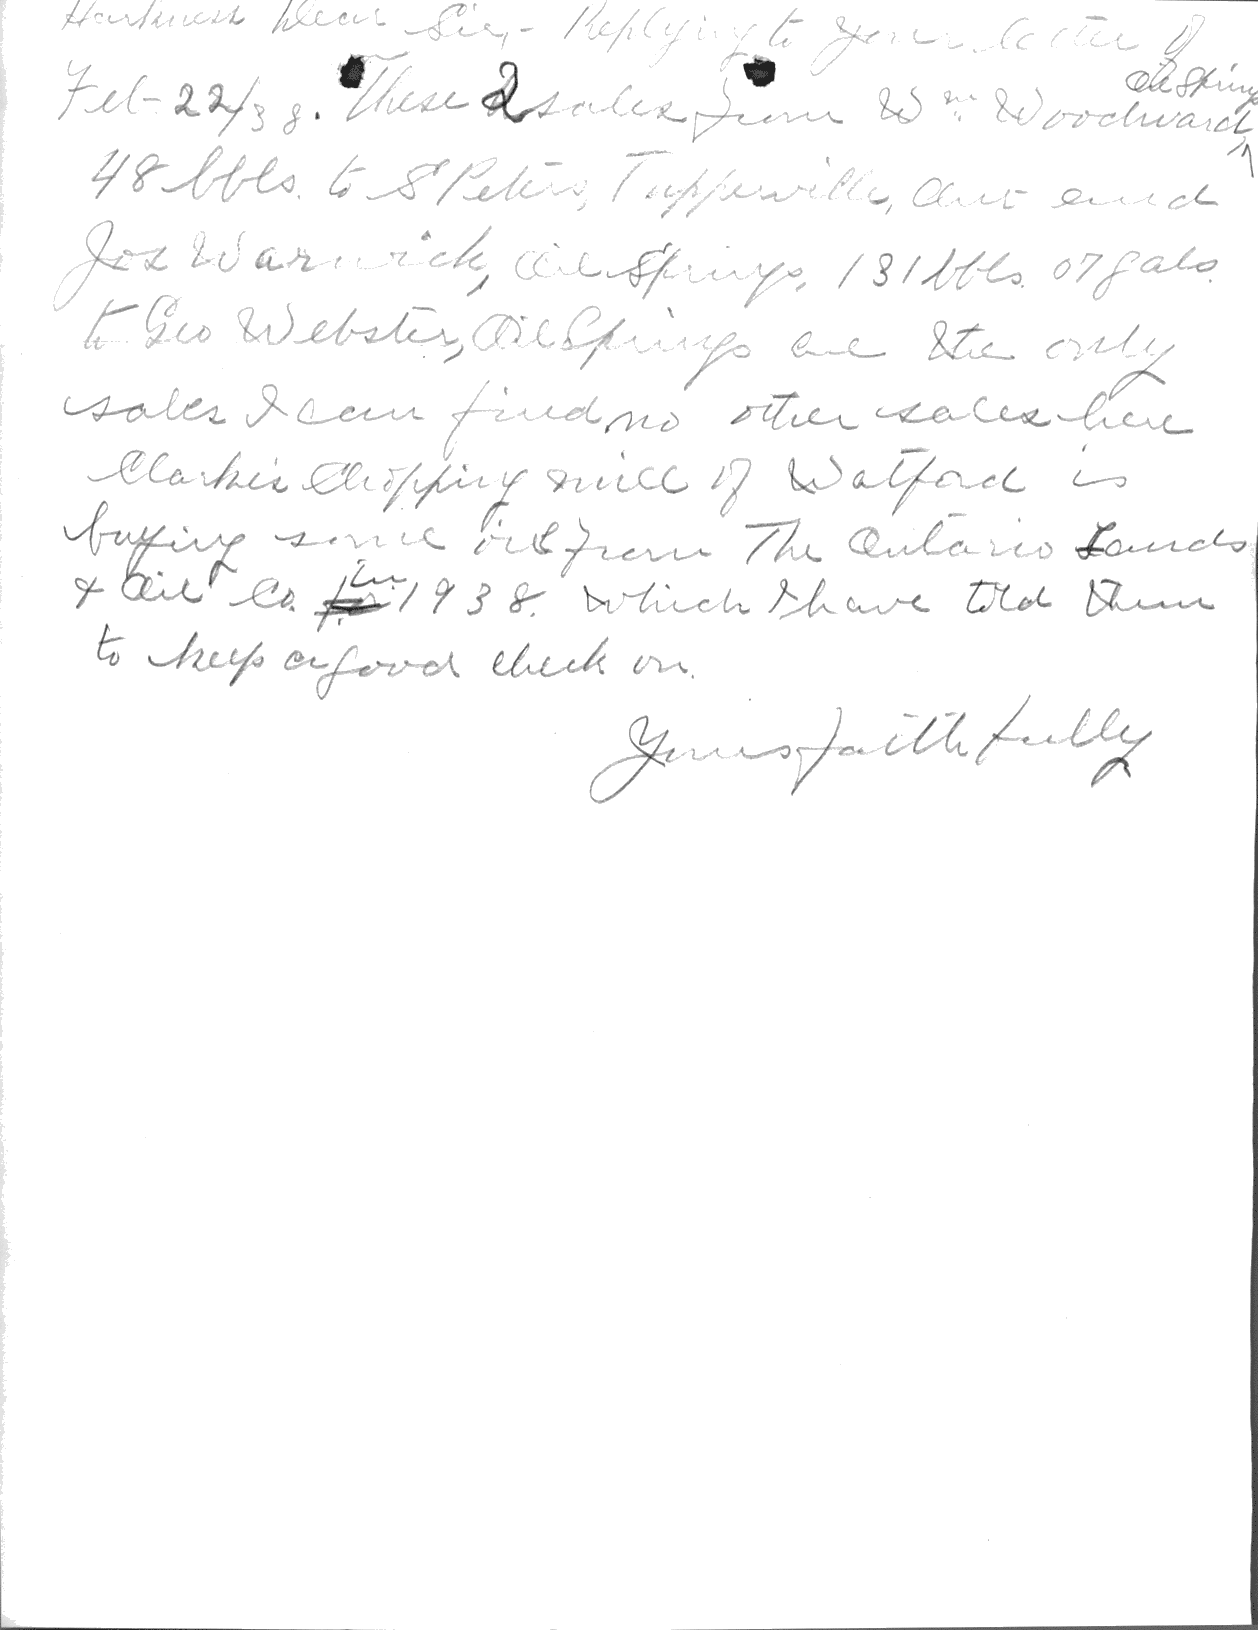 Harkness Dear Sir,- Replying to your letter of
Feb-22/38. These 2 sales from Wm Woodward, Oil Springs
48 bbls. to S Peters, Tupperville, Ont and
Jos Warwick, Oil Springs, 131 bbls. 07 gals.
to Geo Webster, Oil Springs are the only
sales I can find, no other sales here
Clarkes Chopping mill of Watford is
buying some oil from The Ontario Lands
& Oil Co. in 1938. which I have told them
to keep a good check on.
Yours faithfully